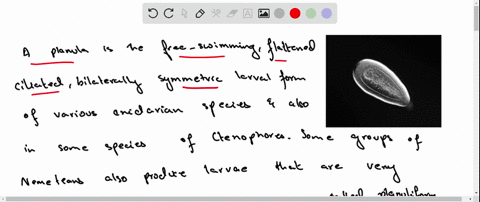 A planula is the free-swimming, flattened
ciliated, bilaterally symmetric larval form
of various cnidarian species & also
in some species of Ctenophores. Some groups of
Nemerteans also produce larvae that are very
called planuliform